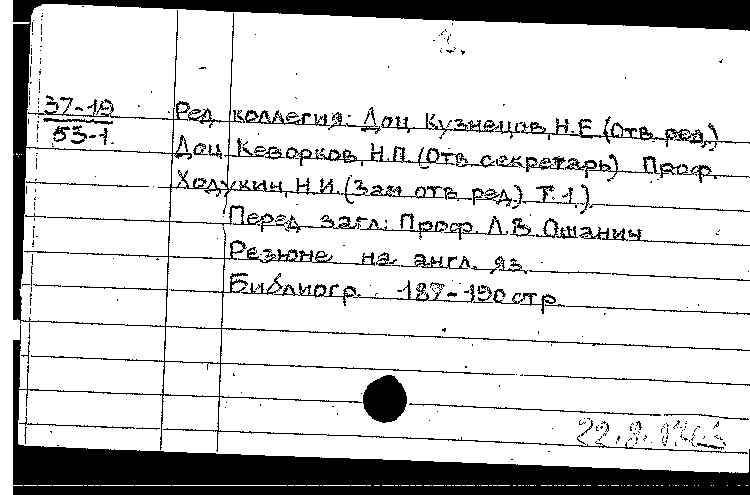 2.
37-19
53-1.
Ред коллегия: Доц Кузнецов, Н.Е (Отв ред.)
Доц Кеворков, Н.П. (Отв секретарь) Проф.
Ходукин, Н.И. (Зам отв ред.) Т.1.).
Перед загл: Проф. Л.В Ошанин
Резюме на англ. яз.
Библиогр. 187-190 стр
22.8.